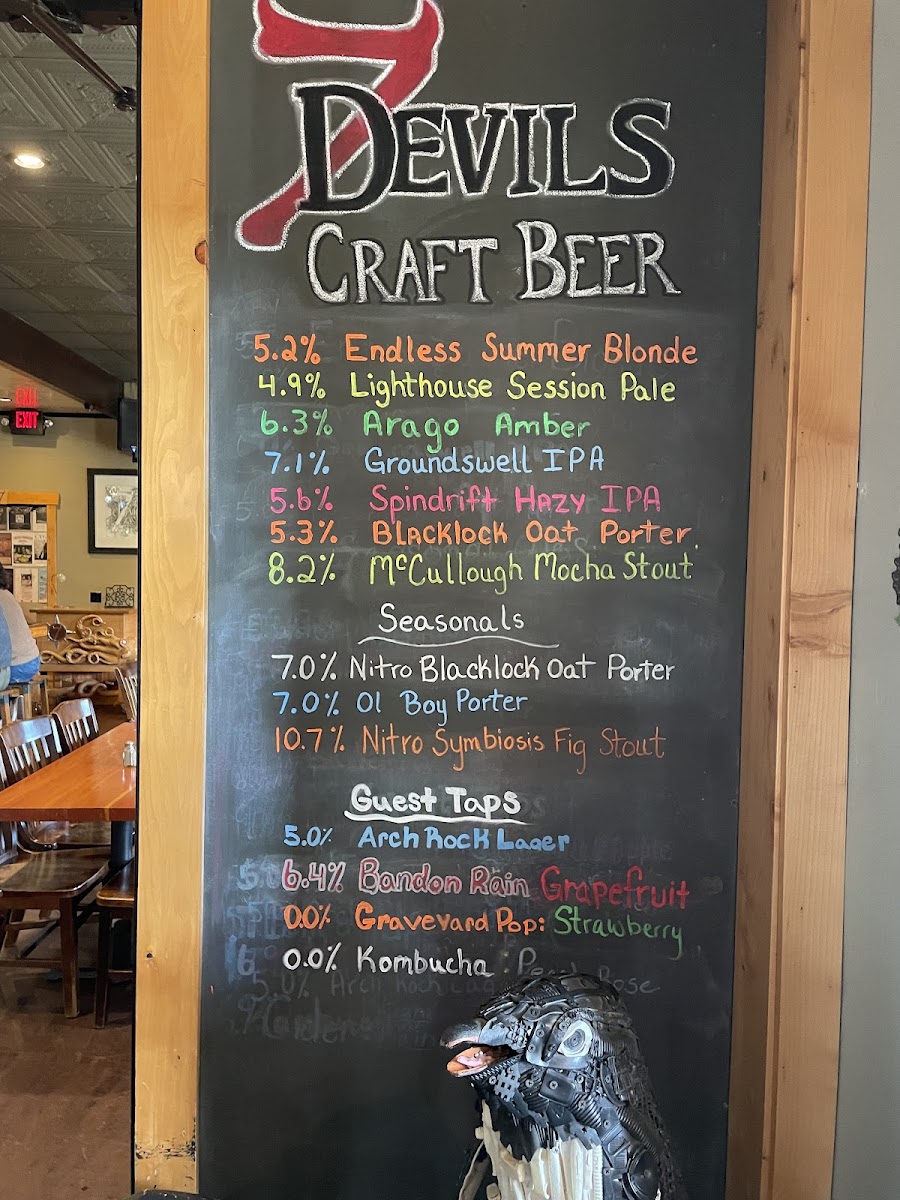 7 DEVILS
CRAFT BEER
5.2% Endless Summer Blonde
4.9% Lighthouse Session Pale
6.3% Arago Amber
7.1% Groundswell IPA
5.6% Spindrift Hazy IPA
5.3% Blacklock Oat Porter
8.2% McCullough Mocha Stout
Seasonals
7.0% Nitro Blacklock Oat Porter
7.0% Ol Boy Porter
10.7% Nitro Symbiosis Fig Stout
Guest Taps
5.0% Arch Rock Lager
6.4% Bandon Rain Grapefruit
0.0% Graveyard Pop: Strawberry
0.0% Kombucha:
EXIT